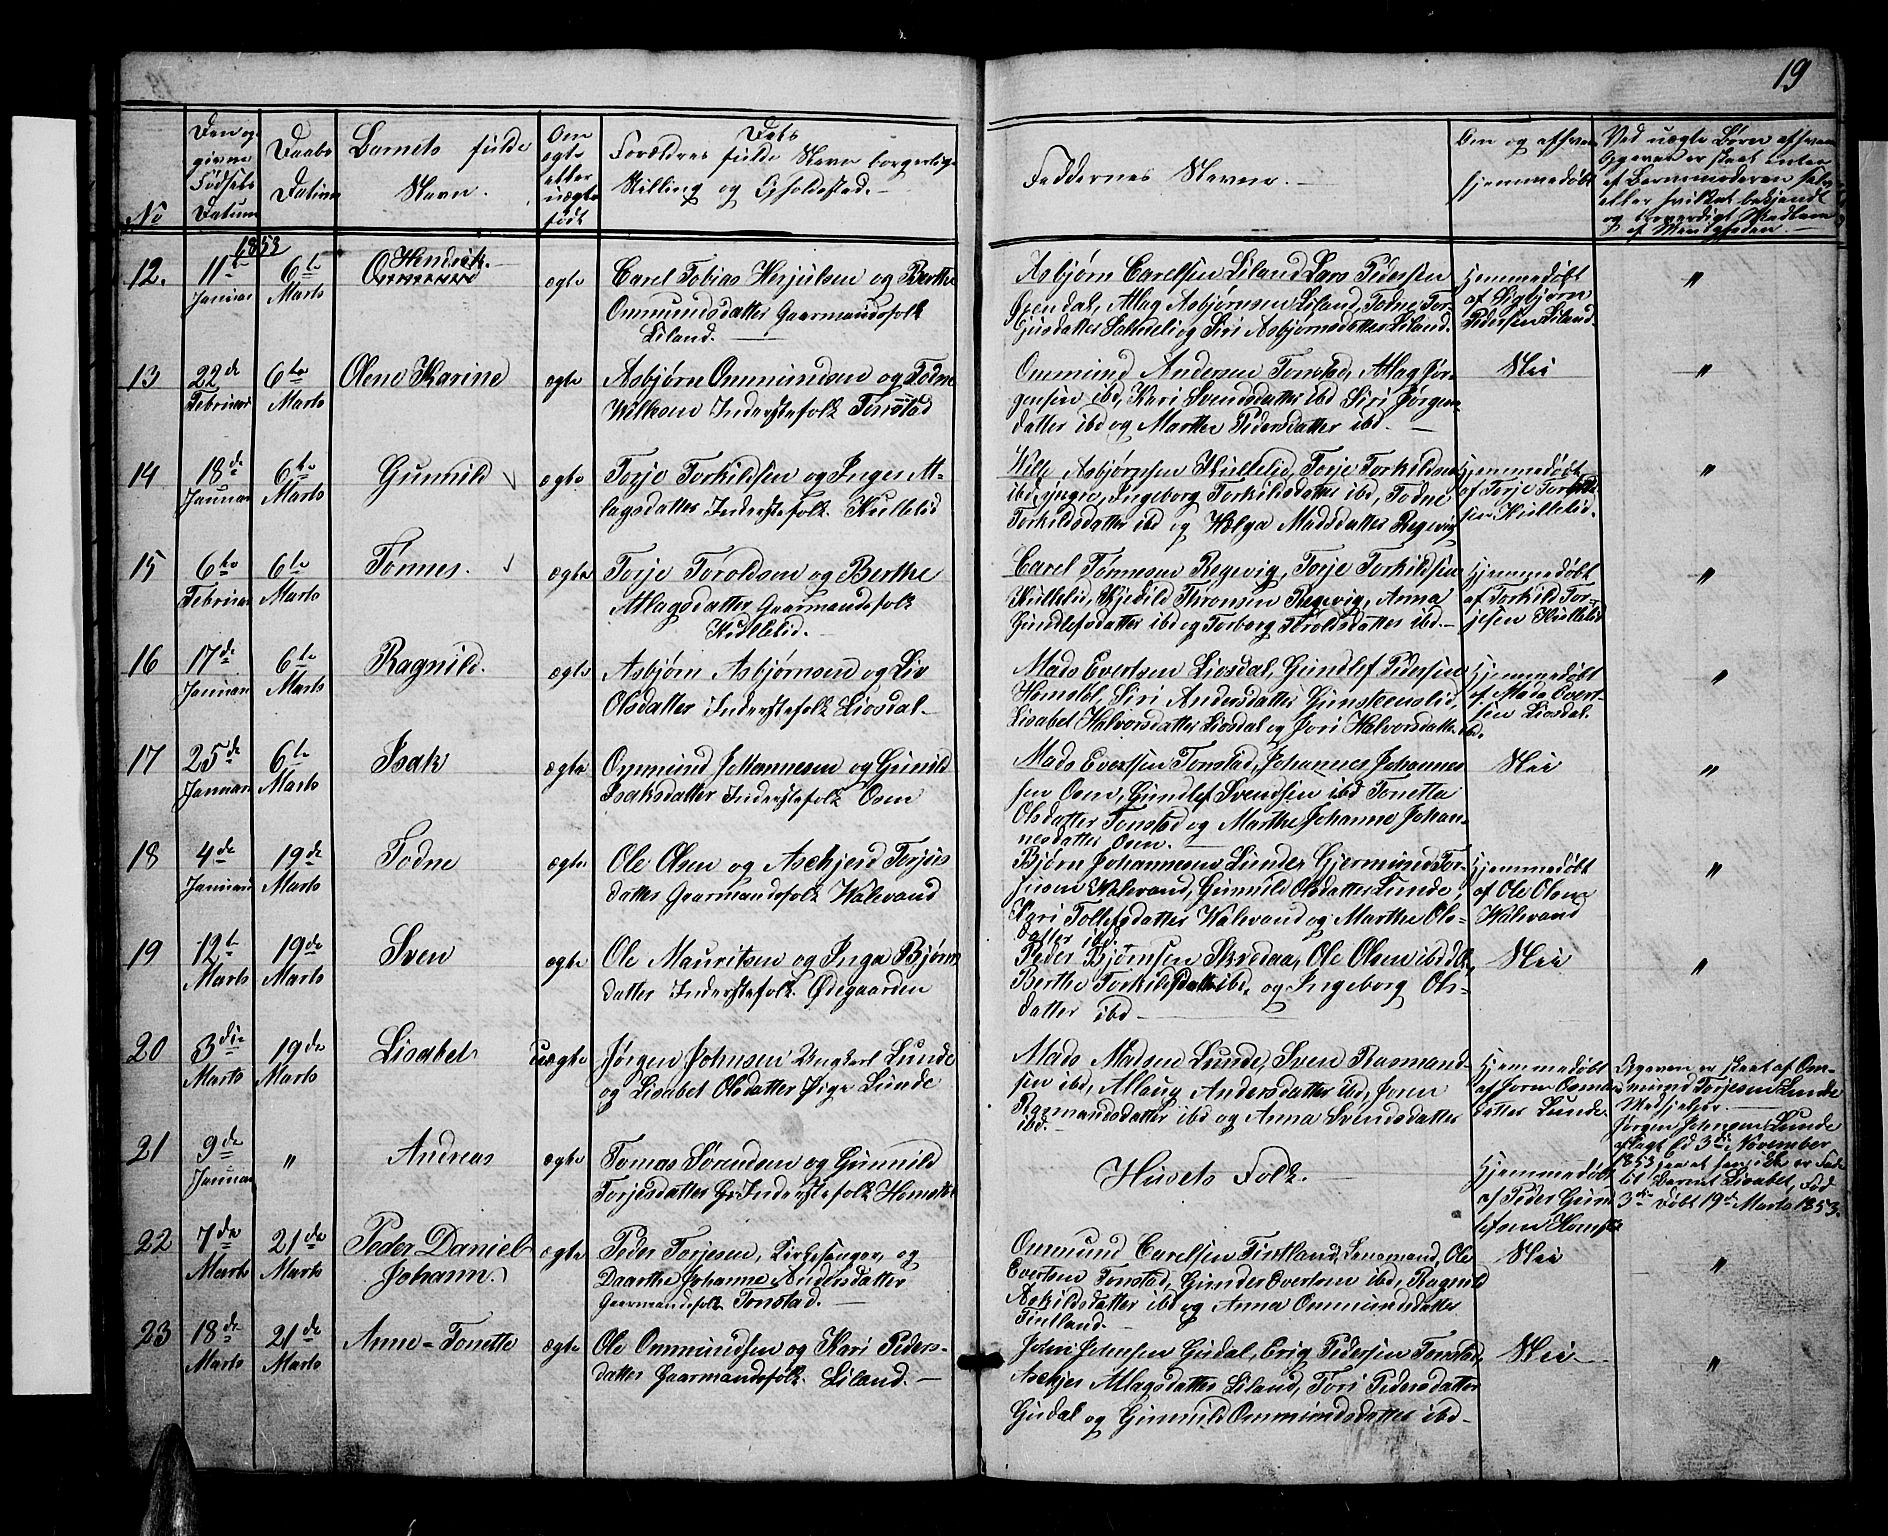 19
No
Den op-
givne
Fødsels
Datum
Daabs
Datum
Barnets fulde
Navn.
Om
ægte
eller
uægte
født
Dets
Forældres fulde Navn borgerlige
Stilling og Opholdssted.
Faddernes Navne.
Om og af hvem
hjemmedøbt
Ved uægte Børn af hvem
Opgaven er skeet enten
af Barnemoderen selv
eller hvilket bekjendt
og troværdigt Medlem
af Menigheden.
1853
12. 11te Januar 6te Marts Hendrik. ægte
Carel Tobias Herjulsen og Berthe
Ommundsdatter Gaarmandsfolk
Liland.
Asbjørn Carelsen Liland, Lars Pedersen
Øxendal, Atlag Asbjørnsen Liland, Todne Tor-
og Siri Asbjørnsdatter Liland.
Hjemmedøbt
af Sigbjørn
Pedersen Liland.
"
13 22de Februar 6te Marts Olene Karine ægte
Asbjørn Ommundsen og Todne
Inderstefolk Tonstad
Ommund Andersen Tonstad, Atlag Jør-
gensen ibd, Kari Svendsdatter ibd Siri Jørgens
datter ibd og Marthe Pedersdatter ibd.
Nei
"
14 18de Januar 6te Marts Gunnild ægte
Torje Torkildsen og Inger At-
lagsdatter Inderstefolk Kullelid
Asbjørnsen Kullelid, Torje Torkildsen
ibd yngre, Ingeborg Torkildsdatter ibd, Todne
Torkildsdatter ibd og Helga Madsdatter Regevig
Hjemmedøbt
af Torje Torkild-
sen Kullelid.
"
15 6te Februar 6te Marts Tønnes. ægte
Torje Toroldsen og Berthe
Atlagsdatter Gaarmandsfolk
Kullelid.
Carel Tønnesen Regevig, Torje Torkildsen
Kullelid, Kjedild Thronsen Regevig, Anna
Gundlefsdatter ibd og Torborg Toroldsdatter ibd.
Hjemmedøbt
af Torkild Tor-
jesen Kullelid
"
16 17de Januar 6te Marts Ragnild. ægte
Asbjørn Asbjørnsen og Liv
Olsdatter Inderstefolk Liosdal
Mads Evertsen Liosdal, Gundlef Pedersen
Homstøl, Siri Andersdatter Gunsteenslid,
Lisabet Halvorsdatter Liosdal og Jori Halvorsdatter ibd.
Hjemmedøbt
af Mads Evert-
sen Liosdal.
"
17 25de Januar 6te Marts Isak ægte
Ommund Johannesen og Gunild
Isaksdatter Inderstefolk Osen
Mads Evertsen Tonstad, Johannes Johannes
sen Osen, Gundlef Svendsen ibd Tonetta
Olsdatter Tonstad og Marthe Johanne Johan-
nesdatter Osen.
Nei
"
18 4de Januar 19de Marts Todne ægte
Ole Olsen og Askjerd Torjus
datter Gaarmandsfolk Walevand
Bjørn Johannesen Lunde, Gjermund Tor-
jusen Walevand, Gunnild Olsdatter Lunde,
Kari Tollefsdatter Walevand og Marthe Ols-
datter ibd.
Hjemmedøbt
af Ole Olsen
Walevand
"
19 12te Marts 19de Marts Sven ægte
Ole Mauritsen og Inga Bjørns
datter Inderstefolk Ødegaarden
Peder Bjørnsen Skredaa, Ole Olsen ibd
Berthe Torkildsdatter ibd, og Ingeborg Ols-
datter ibd
Nei
"
20 3die Marts 19de Marts Lisabet uægte
Jørgen Johnsen Ungkarl Lunde
og Lisabet Olsdatter Pige Lunde
Mads Madsen Lunde, Sven Rasmund-
sen ibd, Atlaug Andersdatter ibd, Joren
datter ibd og Anna Svendsdatter
ibd.
Hjemmedøbt
af Joren
datter Lunde.
Opgaven er skeet af Om-
mund Torjesen Lunde
Medhjelper.
Jørgen Johnsen Lunde
aflagt Ed 3die November
1853 paa at han ikke er Fader
til Barnet Lisabet, Fød
3die døbt 19de Marts 1853.
21 9de Januar " Andreas ægte
Tomas Sørensen og Gunnild
Torjesdatter Inderstefolk Homstøl
Husets Folk.
Hjemmedøbt
af Peder Gund
lefsen Homstøl
22 7de Marts 21de Marts Peder Daniel
Johann. ægte
Peder Torjesen, Kirkesanger, og
Daarthe Johanne Andersdatter
Gaarmandsfolk Tonstad.
Ommund Carelsen Fintland, Lensmand, Ole
Evertsen Tonstad, Gunder Evertsen ibd, Ragnild
Askildsdatter ibd og Anna Ommundsdatter
Fintland.
Nei
"
23 18de Marts 21de Marts Anne-Tonette ægte
Ole Ommundsen og Kari Peders-
datter Gaarmandsfolk Liland.
John Johnsen Gudal, Erig Pedersen Tonstad,
Askjer Atlagsdatter Liland, Tori Pedersdatter
Gudal og Gunnild Ommundsdatter ibd
Nei
"